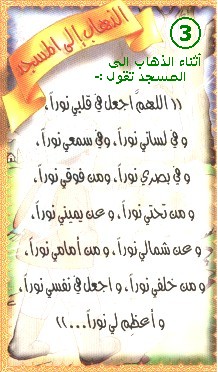 الذهاب إلى المسجد
3
أثناء الذهاب إلى
المسجد تقول :-
(( اللهمَّ اجعل في قلبي نوراً،
و في لساني نوراً، وفي سمعي نوراً،
و في بصري نوراً، ومن فوقي نوراً،
و من تحتي نوراً، و عن يميني نوراً،
و عن شمالي نوراً، و من أمامي نوراً،
و من خلفي نوراً، و اجعل في نفسي نوراً،
و أعظِم لي نوراً...))